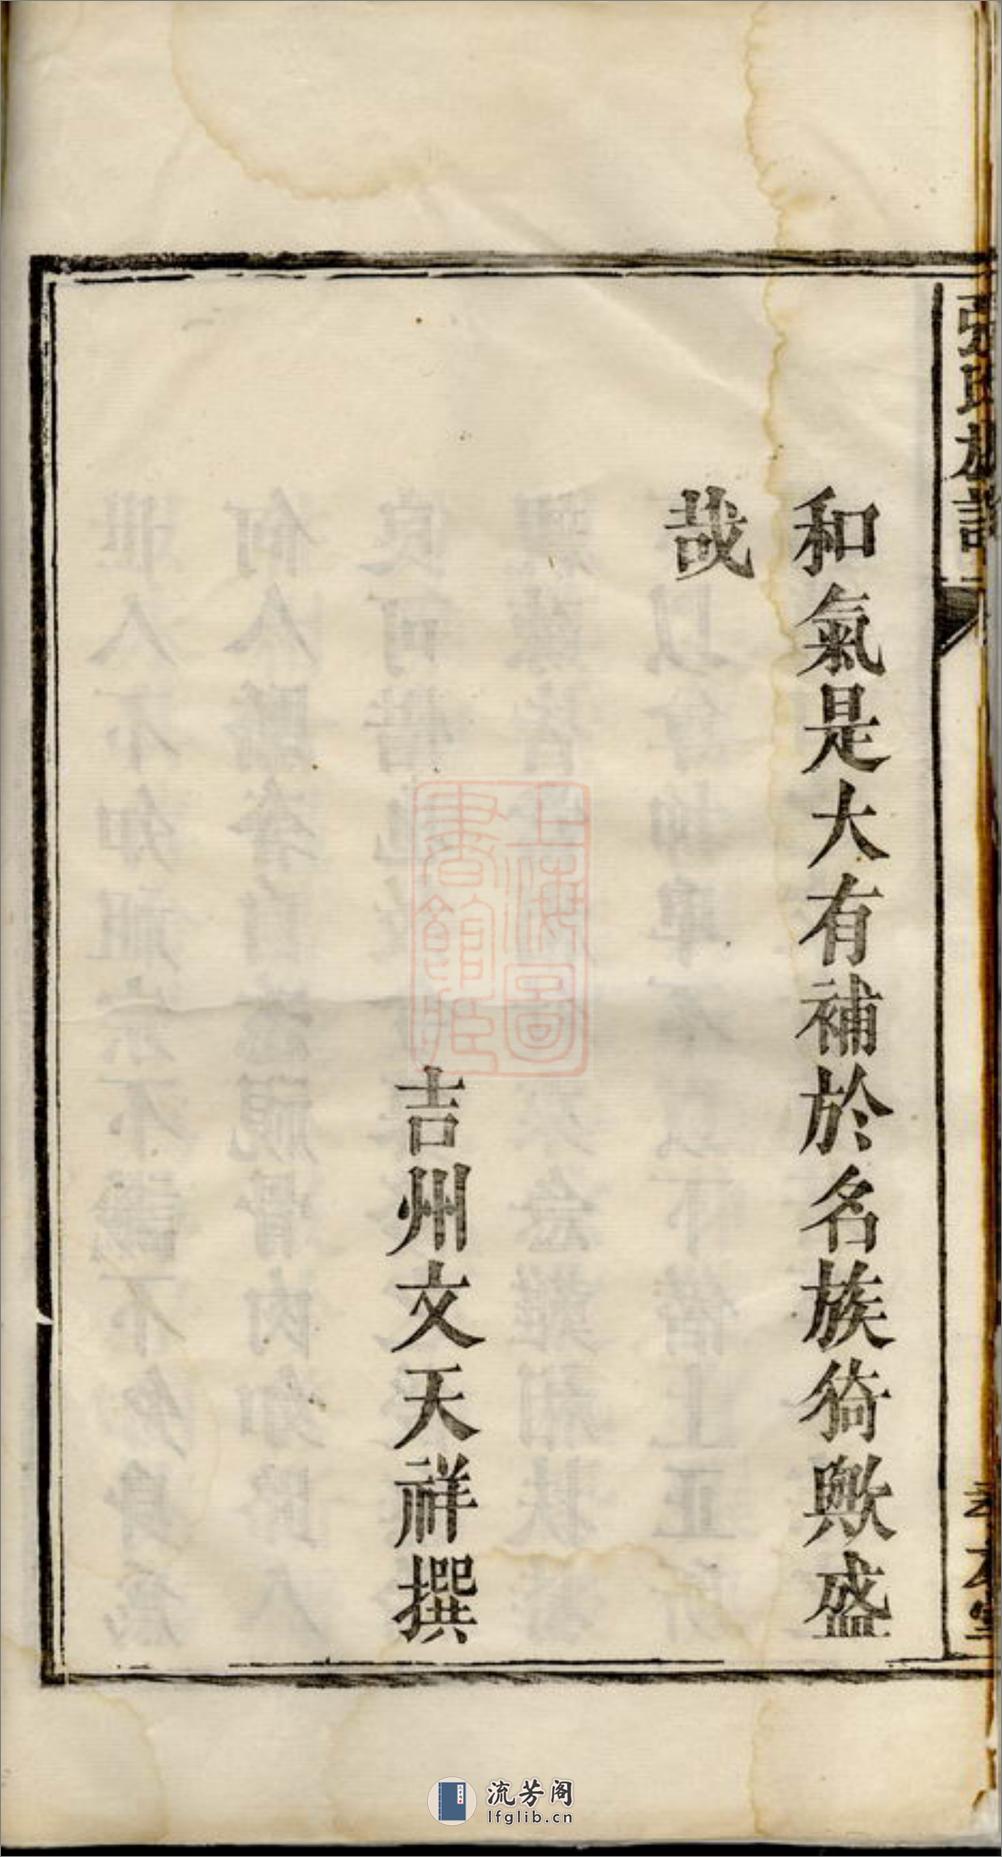 張氏族譜
孝友堂
和氣是大有補於名族猗歟盛
哉
吉州文天祥撰
上海圖
書館藏
流芳阁
lfglib.cn